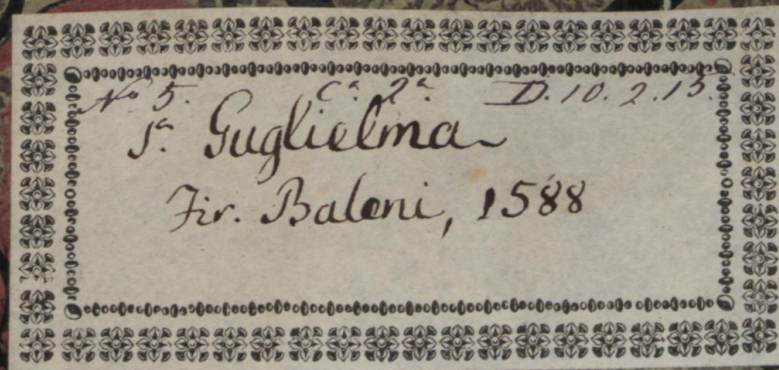 No 5. Ca. 2a. D. 10. 2. 15.
Sa. Guglielma
Fir. Baleni, 1588